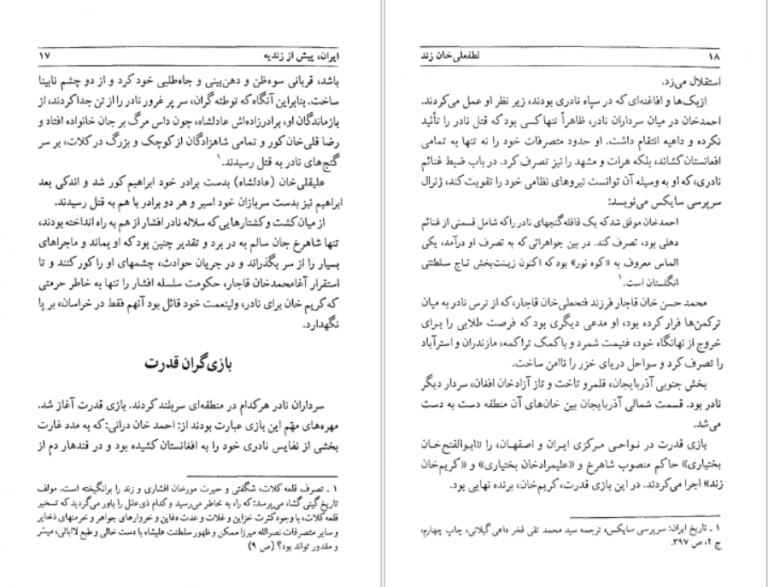 ایران، پیش از زندیه ۱۷
باشد، قربانی سوءظن و دهن‌بینی و جاه‌طلبی خود کرد و از دو چشم نابینا
ساخت. بنابراین آنگاه که توطئه گران، سر پر غرور نادر را از تن جدا کردند، از
بازماندگان او، برادرزاده‌اش عادلشاه، چون داس مرگ بر جان خانواده افتاد و
رضا قلی‌خان کور و تمامی شاهزادگان از کوچک و بزرگ در کلات، بر سر
گنج‌های نادر به قتل رسیدند.۱
علیقلی‌خان (عادلشاه) بدست برادر خود ابراهیم کور شد و اندکی بعد
ابراهیم نیز بدست سربازان خود اسیر و هر دو برادر با هم به قتل رسیدند.
از میان کشت و کشتارهایی که سلاله نادر افشار از هم به راه انداخته بودند،
تنها شاهرخ جان سالم به در برد و تقدیر چنین بود که او بماند و ماجراهای
بسیار را از سر بگذراند و در جریان حوادث، چشمهای او را کور کنند و تا
استقرار آغامحمدخان قاجار، حکومت سلسله افشار را تنها به خاطر حرمتی
که کریم خان برای نادر، ولینعمت خود قائل بود آنهم فقط در خراسان، بر پا
نگهدارد.
بازی‌گران قدرت
سرداران نادر هرکدام در منطقه‌ای سربلند کردند. بازی قدرت آغاز شد.
مهره‌های مهّم این بازی عبارت بودند از: احمد خان درانی: که به مدد غارت
بخشی از نفایس نادری خود را به افغانستان کشیده بود و در قندهار دم از
۱ ـ تصرف قلعه کلات، شگفتی و حیرت مورخان افشاری و زند را برانگیخته است. مولف
تاریخ گیتی گشا، می‌پرسد: که راه، به خاطر می‌رسید و کدام ذی‌عقل را باور می‌گردید که تسخیر
قلعه کلات، با وجود کثرت خزاین و غلات و عدت دفاین و خروارهای جواهر و خرمنهای ذخایر
و سایر متصرفات نصرالله میرزا ممکن و ظهور سلطنت علیشاه با دست خالی و طبع لاابالی، میسّر
و مقدور تواند بود؟ (ص ۹)
۱۸ لطفعلی‌خان زند
استقلال می‌زد.
ازبک‌ها و افاغنه‌ای که در سپاه نادری بودند، زیر نظر او عمل می‌کردند.
احمدخان در میان سرداران نادر، ظاهراً تنها کسی بود که قتل نادر را تأئید
نکرده و داعیه انتقام داشت. او حدود متصرفات خود را نه تنها به تمامی
افغانستان کشاند، بلکه هرات و مشهد را نیز تصرف کرد. در باب ضبط غنائم
نادری، که او به وسیله آن توانست نیروهای نظامی خود را تقویت کند، ژنرال
سرپرسی سایکس می‌نویسد:
احمدخان موفق شد که یک قافله گنجهای نادر را که شامل قسمتی از غنائم
دهلی بود، تصرف کند. در بین جواهراتی که به تصرف او درآمد، یکی
الماس معروف به «کوه نور» بود که اکنون زینت‌بخش تاج سلطنتی
انگلستان است.۱
محمد حسن خان قاجار فرزند فتحعلی‌خان قاجار، که از ترس نادر به میان
ترکمن‌ها فرار کرده بود، او مدعی دیگری بود که فرصت طلایی را برای
خروج از نهانگاه خود، غنیمت شمرد و با کمک تراکمه، مازندران و استرآباد
را تصرف کرد و سواحل دریای خزر را ناامن ساخت.
بخش جنوبی آذربایجان، قلمرو تاخت و تاز آزادخان افغان، سردار دیگر
نادر بود. قسمت شمالی آذربایجان بین خان‌های آن منطقه دست به دست
می‌شد.
بازی قدرت در نواحی مرکزی ایران و اصفهان، را «ابوالفتح‌خان
بختیاری» حاکم منصوب شاهرخ و «علیمرادخان بختیاری» و «کریم‌خان
زند» اجرا می‌کردند. در این بازی قدرت، کریم‌خان، برنده نهایی بود.
۱ ـ تاریخ ایران: سرپرسی سایکس، ترجمه سید محمد تقی فخر داعی گیلانی، چاپ چهارم،
ج ۲، ص ۳۹۷.